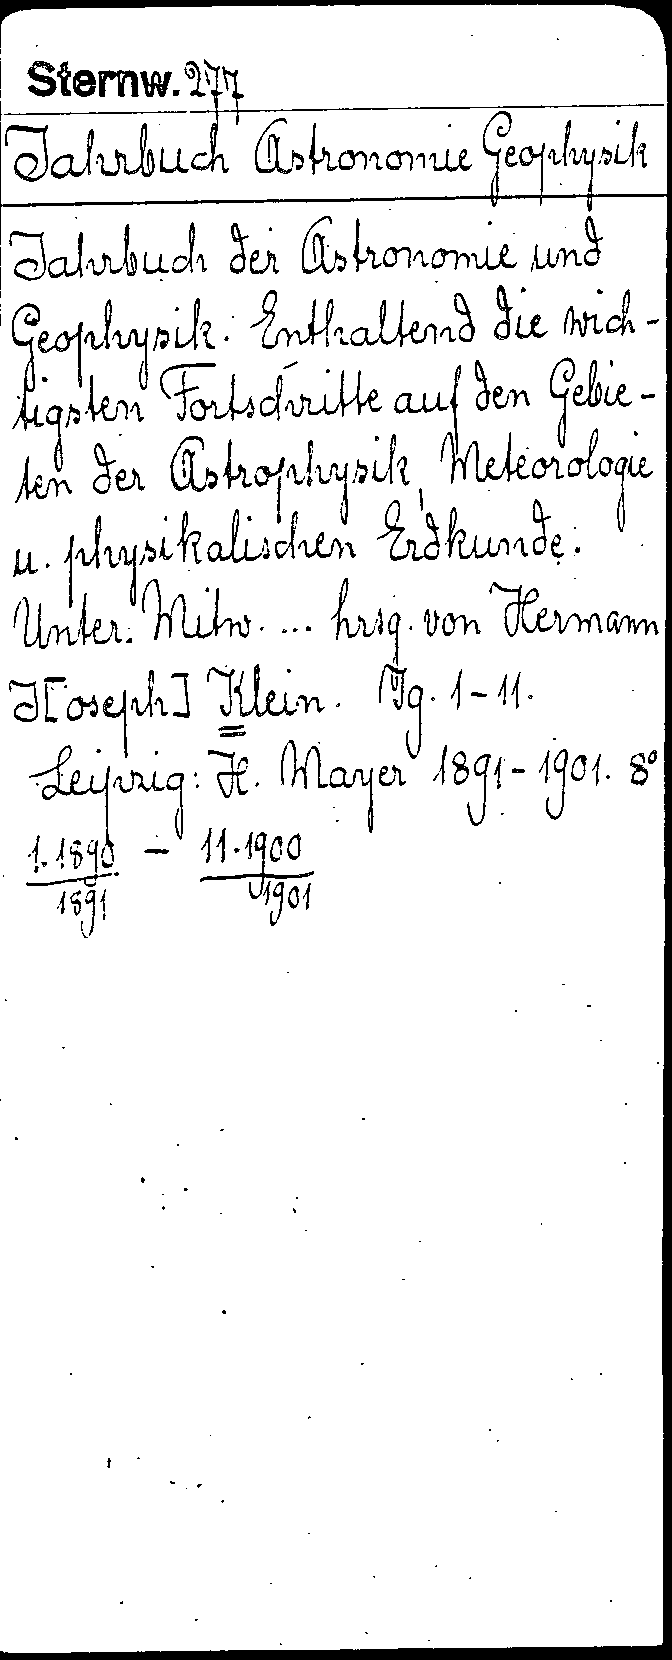 Sternw. 277
Jahrbuch Astronomie Geophysik
Jahrbuch der Astronomie und
Geophysik. Enthaltend die wich-
tigsten Fortschritte auf den Gebie-
ten der Astrophysik, Meteorologie
u. physikalischen Erdkunde.
Unter Mitw. ... hrsg. von Hermann
J[oseph] Klein. Jg. 1-11.
Leipzig: H. Mayer 1891-1901. 8°
1.1890 - 11.1900
1891 1901